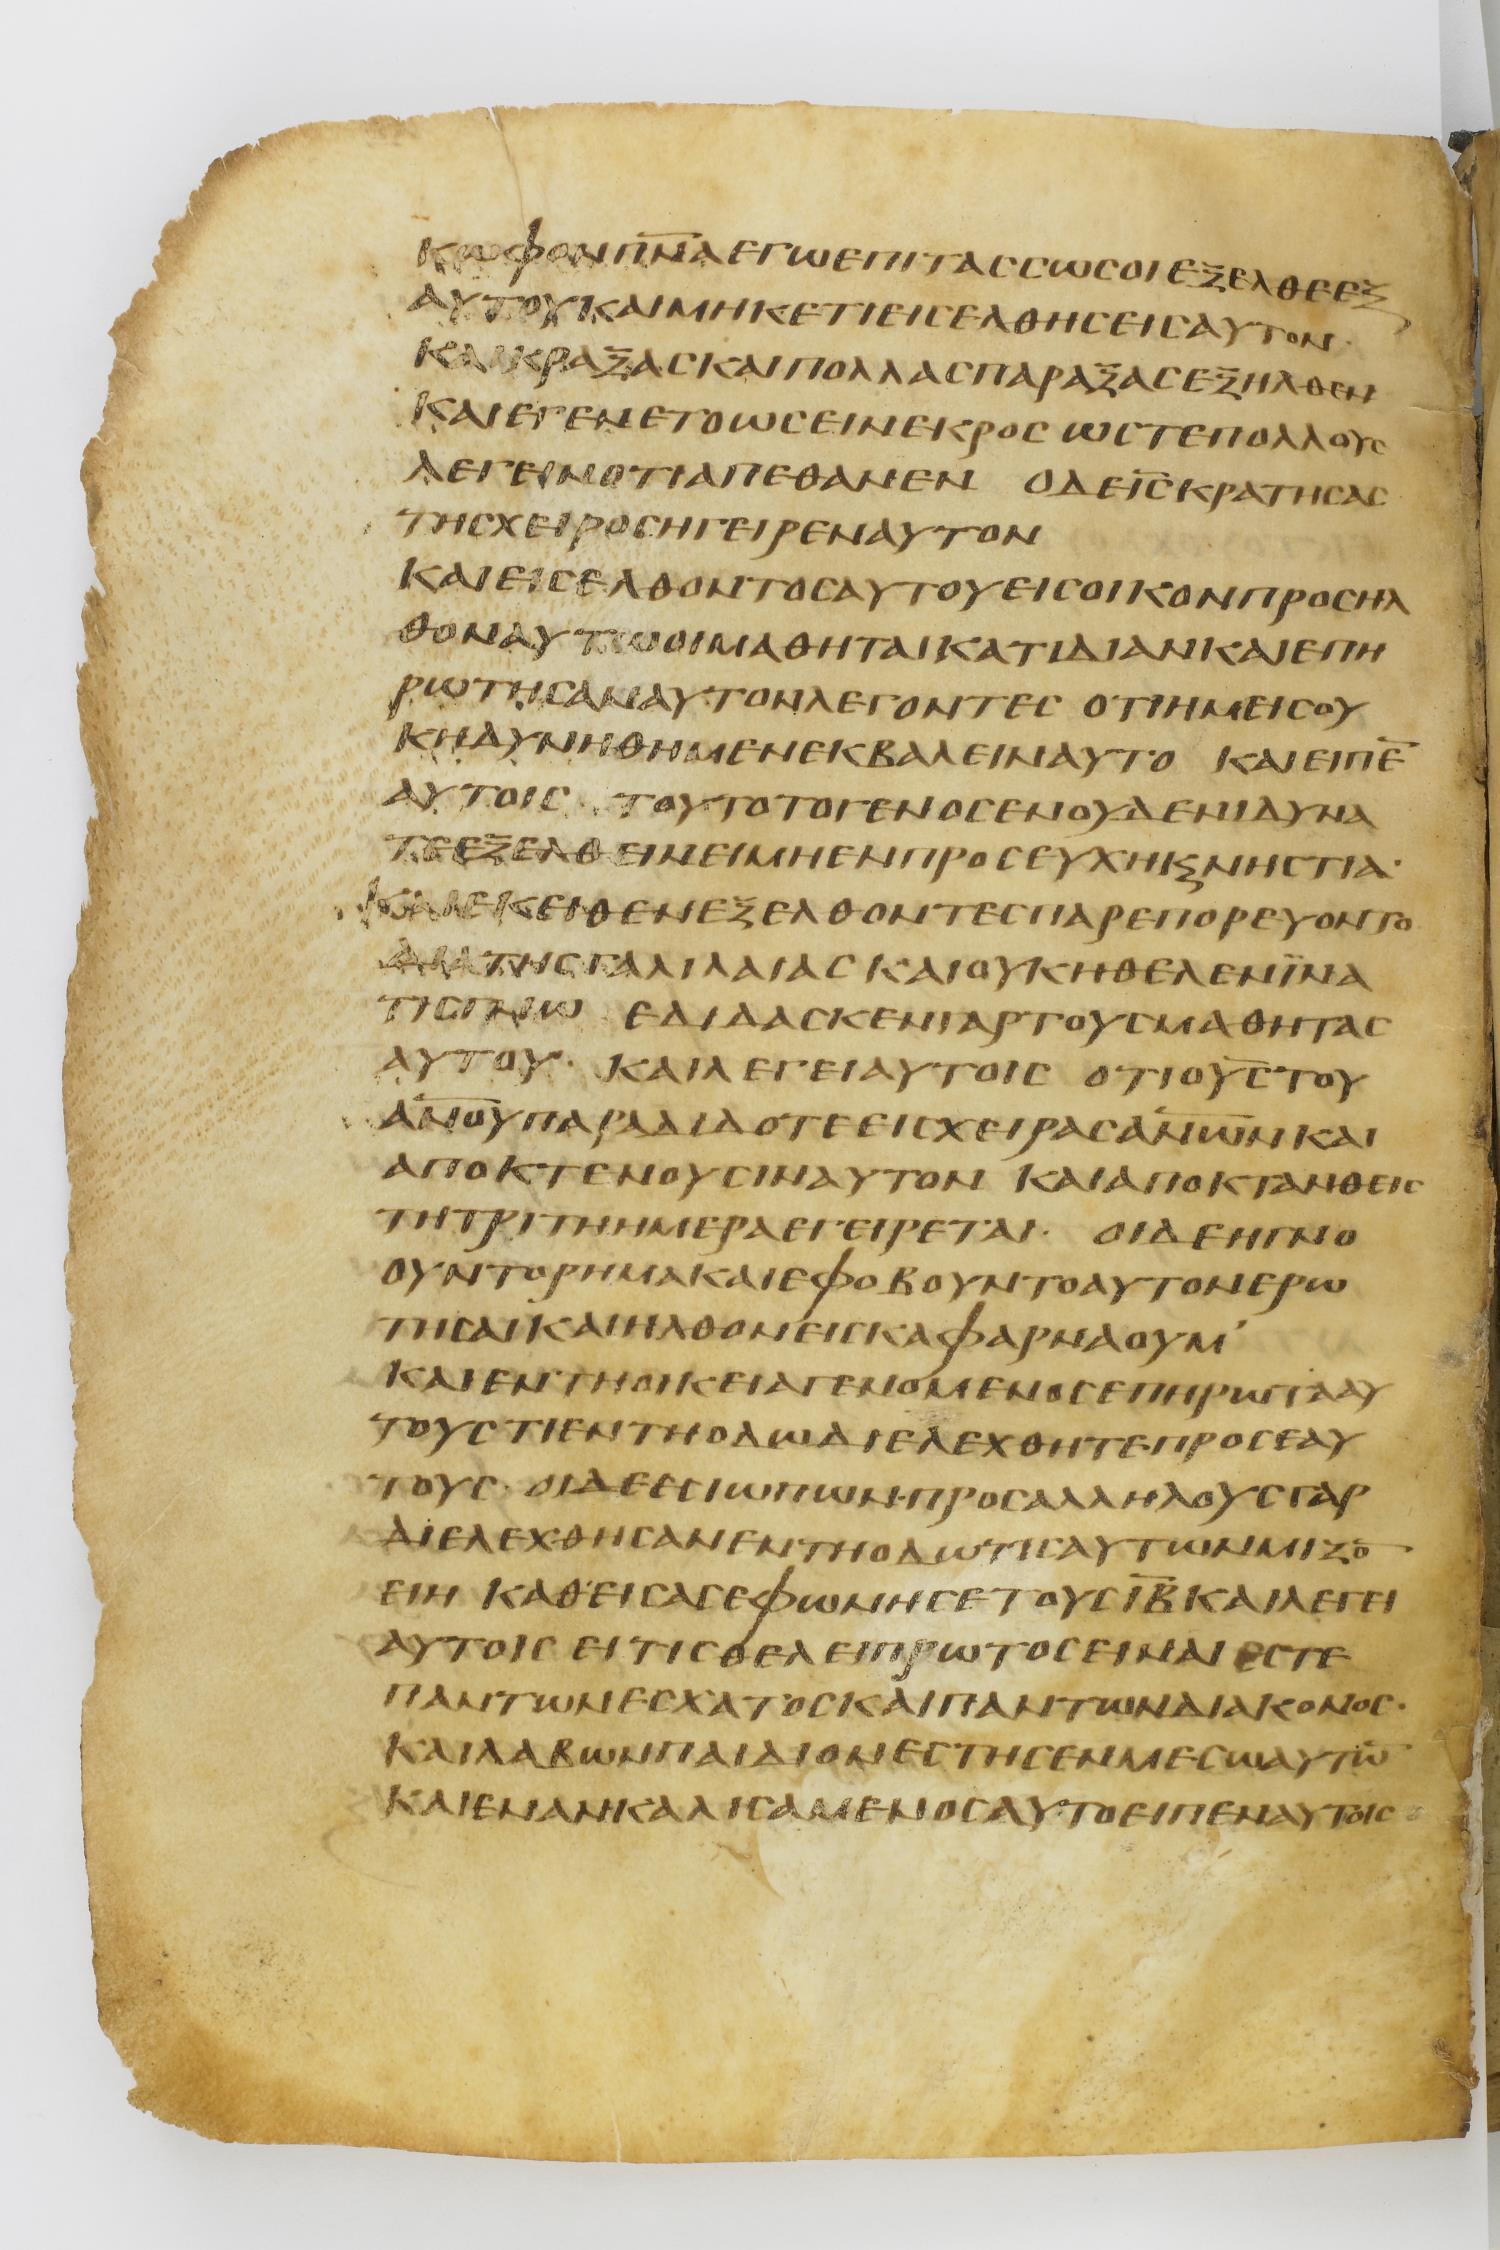 ΚΩΦΟΝΠ̅Ν̅ΑΕΓΩΕΠΙΤΑΣΣΩΣΟΙΕΞΕΛΘΕΕΞ
ΑΥΤΟΥΚΑΙΜΗΚΕΤΙΕΙΣΕΛΘΗΣΕΙΣΑΥΤΟΝ·
ΚΑΙΚΡΑΞΑΣΚΑΙΠΟΛΛΑΣΠΑΡΑΞΑΣΕΞΗΛΘΕΝ
ΚΑΙΕΓΕΝΕΤΟΩΣΕΙΝΕΚΡΟΣ ΩΣΤΕΠΟΛΛΟΥΣ
ΛΕΓΕΙΝΟΤΙΑΠΕΘΑΝΕΝ ΟΔΕΙ̅Σ̅ΚΡΑΤΗΣΑΣ
ΤΗΣΧΕΙΡΟΣΗΓΕΙΡΕΝΑΥΤΟΝ
ΚΑΙΕΙΣΕΛΘΟΝΤΟΣΑΥΤΟΥΕΙΣΟΙΚΟΝΠΡΟΣΗΛ
ΘΟΝΑΥΤΩΟΙΜΑΘΗΤΑΙΚΑΤΙΔΙΑΝΚΑΙΕΠΗ
ΡΩΤΗΣΑΝΑΥΤΟΝΛΕΓΟΝΤΕΣ ΟΤΙΗΜΕΙΣΟΥ
ΚΗΔΥΝΗΘΗΜΕΝΕΚΒΑΛΕΙΝΑΥΤΟ ΚΑΙΕΙΠΕ̅
ΑΥΤΟΙΣ ΤΟΥΤΟΤΟΓΕΝΟΣΕΝΟΥΔΕΝΙΔΥΝΑ
ΤΕΕΞΕΛΘΕΙΝΕΙΜΗΕΝΠΡΟΣΕΥΧΗΚ̣ΝΗΣΤΙΑ·
ΚΑΙΕΚΕΙΘΕΝΕΞΕΛΘΟΝΤΕΣΠΑΡΕΠΟΡΕΥΟΝΤΟ
ΔΙΑΤΗΣΓΑΛΙΛΑΙΑΣΚΑΙΟΥΚΗΘΕΛΕΝΪΝΑ
ΤΙΣΓΝΩ ΕΔΙΔΑΣΚΕΝΓΑΡΤΟΥΣΜΑΘΗΤΑΣ
ΑΥΤΟΥ· ΚΑΙΛΕΓΕΙΑΥΤΟΙΣ ΟΤΙΟΥ̅Σ̅ΤΟΥ
Α̅Ν̅Ο̅Υ̅ΠΑΡΑΔΙΔΟΤΕΕΙΣΧΕΙΡΑΣΑ̅Ν̅Ω̅Ν̅ΚΑΙ
ΑΠΟΚΤΕΝΟΥΣΙΝΑΥΤΟΝ ΚΑΙΑΠΟΚΤΑΝΘΕΙΣ
ΤΗΤΡΙΤΗΗΜΕΡΑΕΓΕΙΡΕΤΑΙ· ΟΙΔΕΗΓΝΟ
ΟΥΝΤΟΡΗΜΑΚΑΙΕΦΟΒΟΥΝΤΟΑΥΤΟΝΕΡΩ
ΤΗΣΑΙΚΑΙΗΛΘΟΝΕΙΣΚΑΦΑΡΝΑΟΥΜ'
ΚΑΙΕΝΤΗΟΙΚΕΙΑΓΕΝΟΜΕΝΟΣΕΠΗΡΩΤΑΑΥ
ΤΟΥΣΤΙΕΝΤΗΟΔΩΔΙΕΛΕΧΘΗΤΕΠΡΟΣΕΑΥ
ΤΟΥΣ· ΟΙΔΕΕΣΙΩΠΩΝ·ΠΡΟΣΑΛΛΗΛΟΥΣΓΑΡ
ΔΙΕΛΕΧΘΗΣΑΝΕΝΤΗΟΔΩΤΙΣΑΥΤΩΝΜΙΖΟ̅
ΕΙΗ ΚΑΘ'ΕΙΣΑΣΕΦΩΝΗΣΕΤΟΥΣΙ̅Β̅ΚΑΙΛΕΓΕΙ
ΑΥΤΟΙΣ ΕΙΤΙΣΘΕΛΕΙΠΡΩΤΟΣΕΙΝΑΙ ΕΣΤΕ
ΠΑΝΤΩΝΕΣΧΑΤΟΣΚΑΙΠΑΝΤΩΝΔΙΑΚΟΝΟΣ·
ΚΑΙΛΑΒΩΝΠΑΙΔΙΟΝΕΣΤΗΣΕΝΜΕΣΩΑΥΤΩ̅
ΚΑΙΕΝΑΝΚΑΛΗΣΑΜΕΝΟΣΑΥΤΟΕΙΠΕΝΑΥΤΟΙΣ